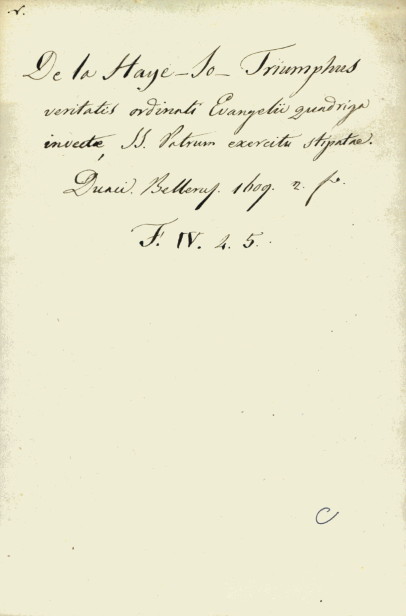 De la Haye - Jo - Triumphus
veritatis ordinati Evangelii quadriga
invectæ, SS. Patrum exercitu stipatae.
Duaci. Beller. 1609. 2. f.
F. IV. 4. 5.
C